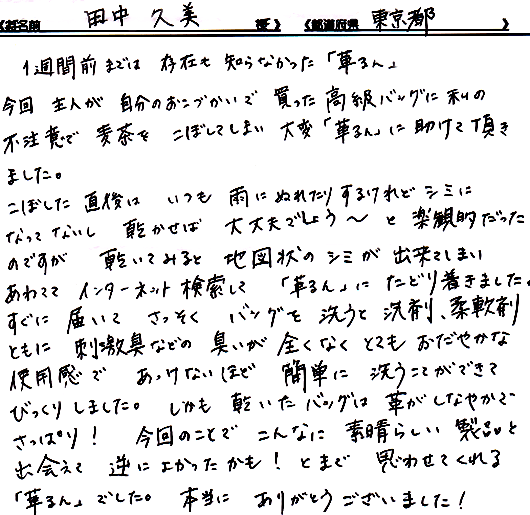 《お名前 田中 久美 様》 《都道府県 東京都 》
1週間前までは 存在も 知らなかった「革るん」
今回 主人が 自分のおこづかいで 買った 高級バッグに 私の
不注意で 麦茶を こぼしてしまい 大変「革るん」に 助けて頂き
ました。
こぼした 直後は いつも 雨に ぬれたり するけれど シミに
なってないし 乾かせば 大丈夫でしょう〜 と 楽観的だった
のですが 乾いてみると 地図状の シミが 出来てしまい
あわてて インターネット 検索して 「革るん」に たどり着きました。
すぐに 届いて さっそく バッグを 洗うと 洗剤、柔軟剤
ともに 刺激臭などの 臭いが 全くなく とても おだやかな
使用感で あっけないほど 簡単に 洗うことができて
びっくりしました。 しかも 乾いたバッグは 革がしなやかで
さっぱり! 今回のことで こんなに 素晴らしい 製品と
出会えて 逆に よかったかも! とまで 思わせてくれる
「革るん」でした。 本当に ありがとうございました!